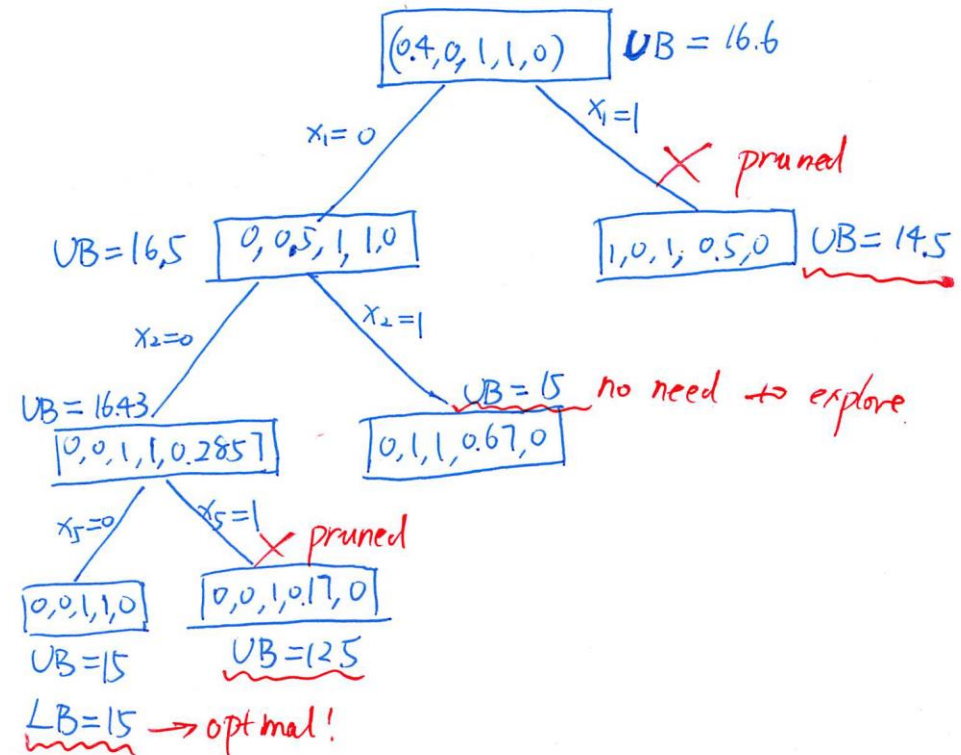 (0.4,0,1,1,0) UB = 16.6
x₁= 0
x₁=1
pruned
UB=16.5
0, 0.5, 1, 1,0
1,0,1, 0.5,0
UB= 14.5
x₂=0
x₂=1
UB=16.43
UB= 15 no need to explore
0,0,1,1,0.2857
0,1,1,0.67,0
x₅=0
x₅=1
pruned
0,0,1,1,0
0,0,1,0.17,0
UB=15
UB=12.5
LB=15 → optmal!